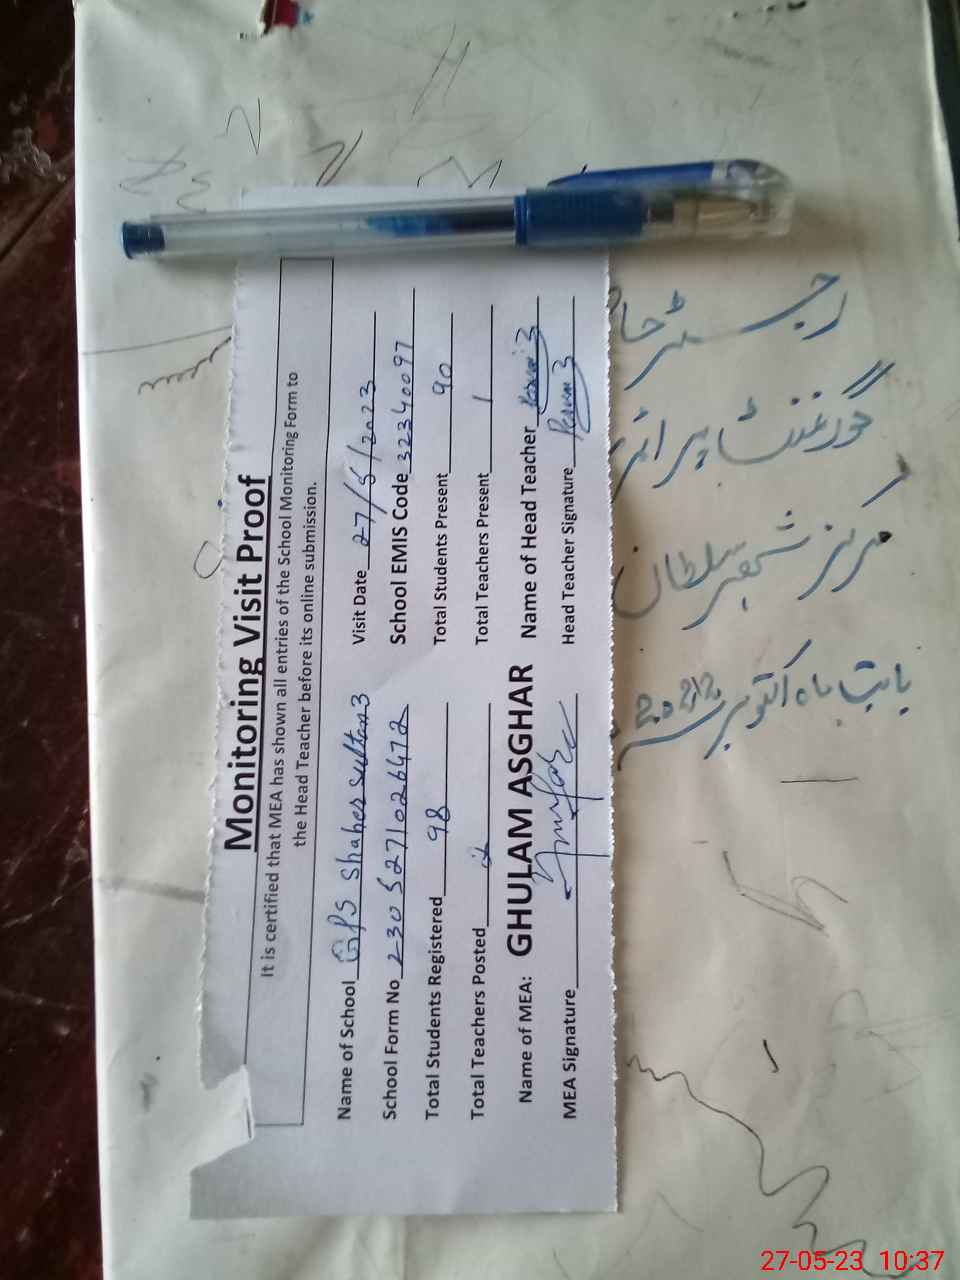 Monitoring Visit Proof
It is certified that MEA has shown all entries of the School Monitoring Form to
the Head Teacher before its online submission.
Name of School GPS Shaher Sultan 3 Visit Date 27/5/2023
School Form No 2305271026472 School EMIS Code 32340097
Total Students Registered 98 Total Students Present 90
Total Teachers Posted 2 Total Teachers Present 1
Name of MEA: GHULAM ASGHAR Name of Head Teacher
MEA Signature Head Teacher Signature
رجسٹر
گورنمنٹ
مرکز شہر سلطان
بابت ماہ اکتوبر
27-05-23 10:37